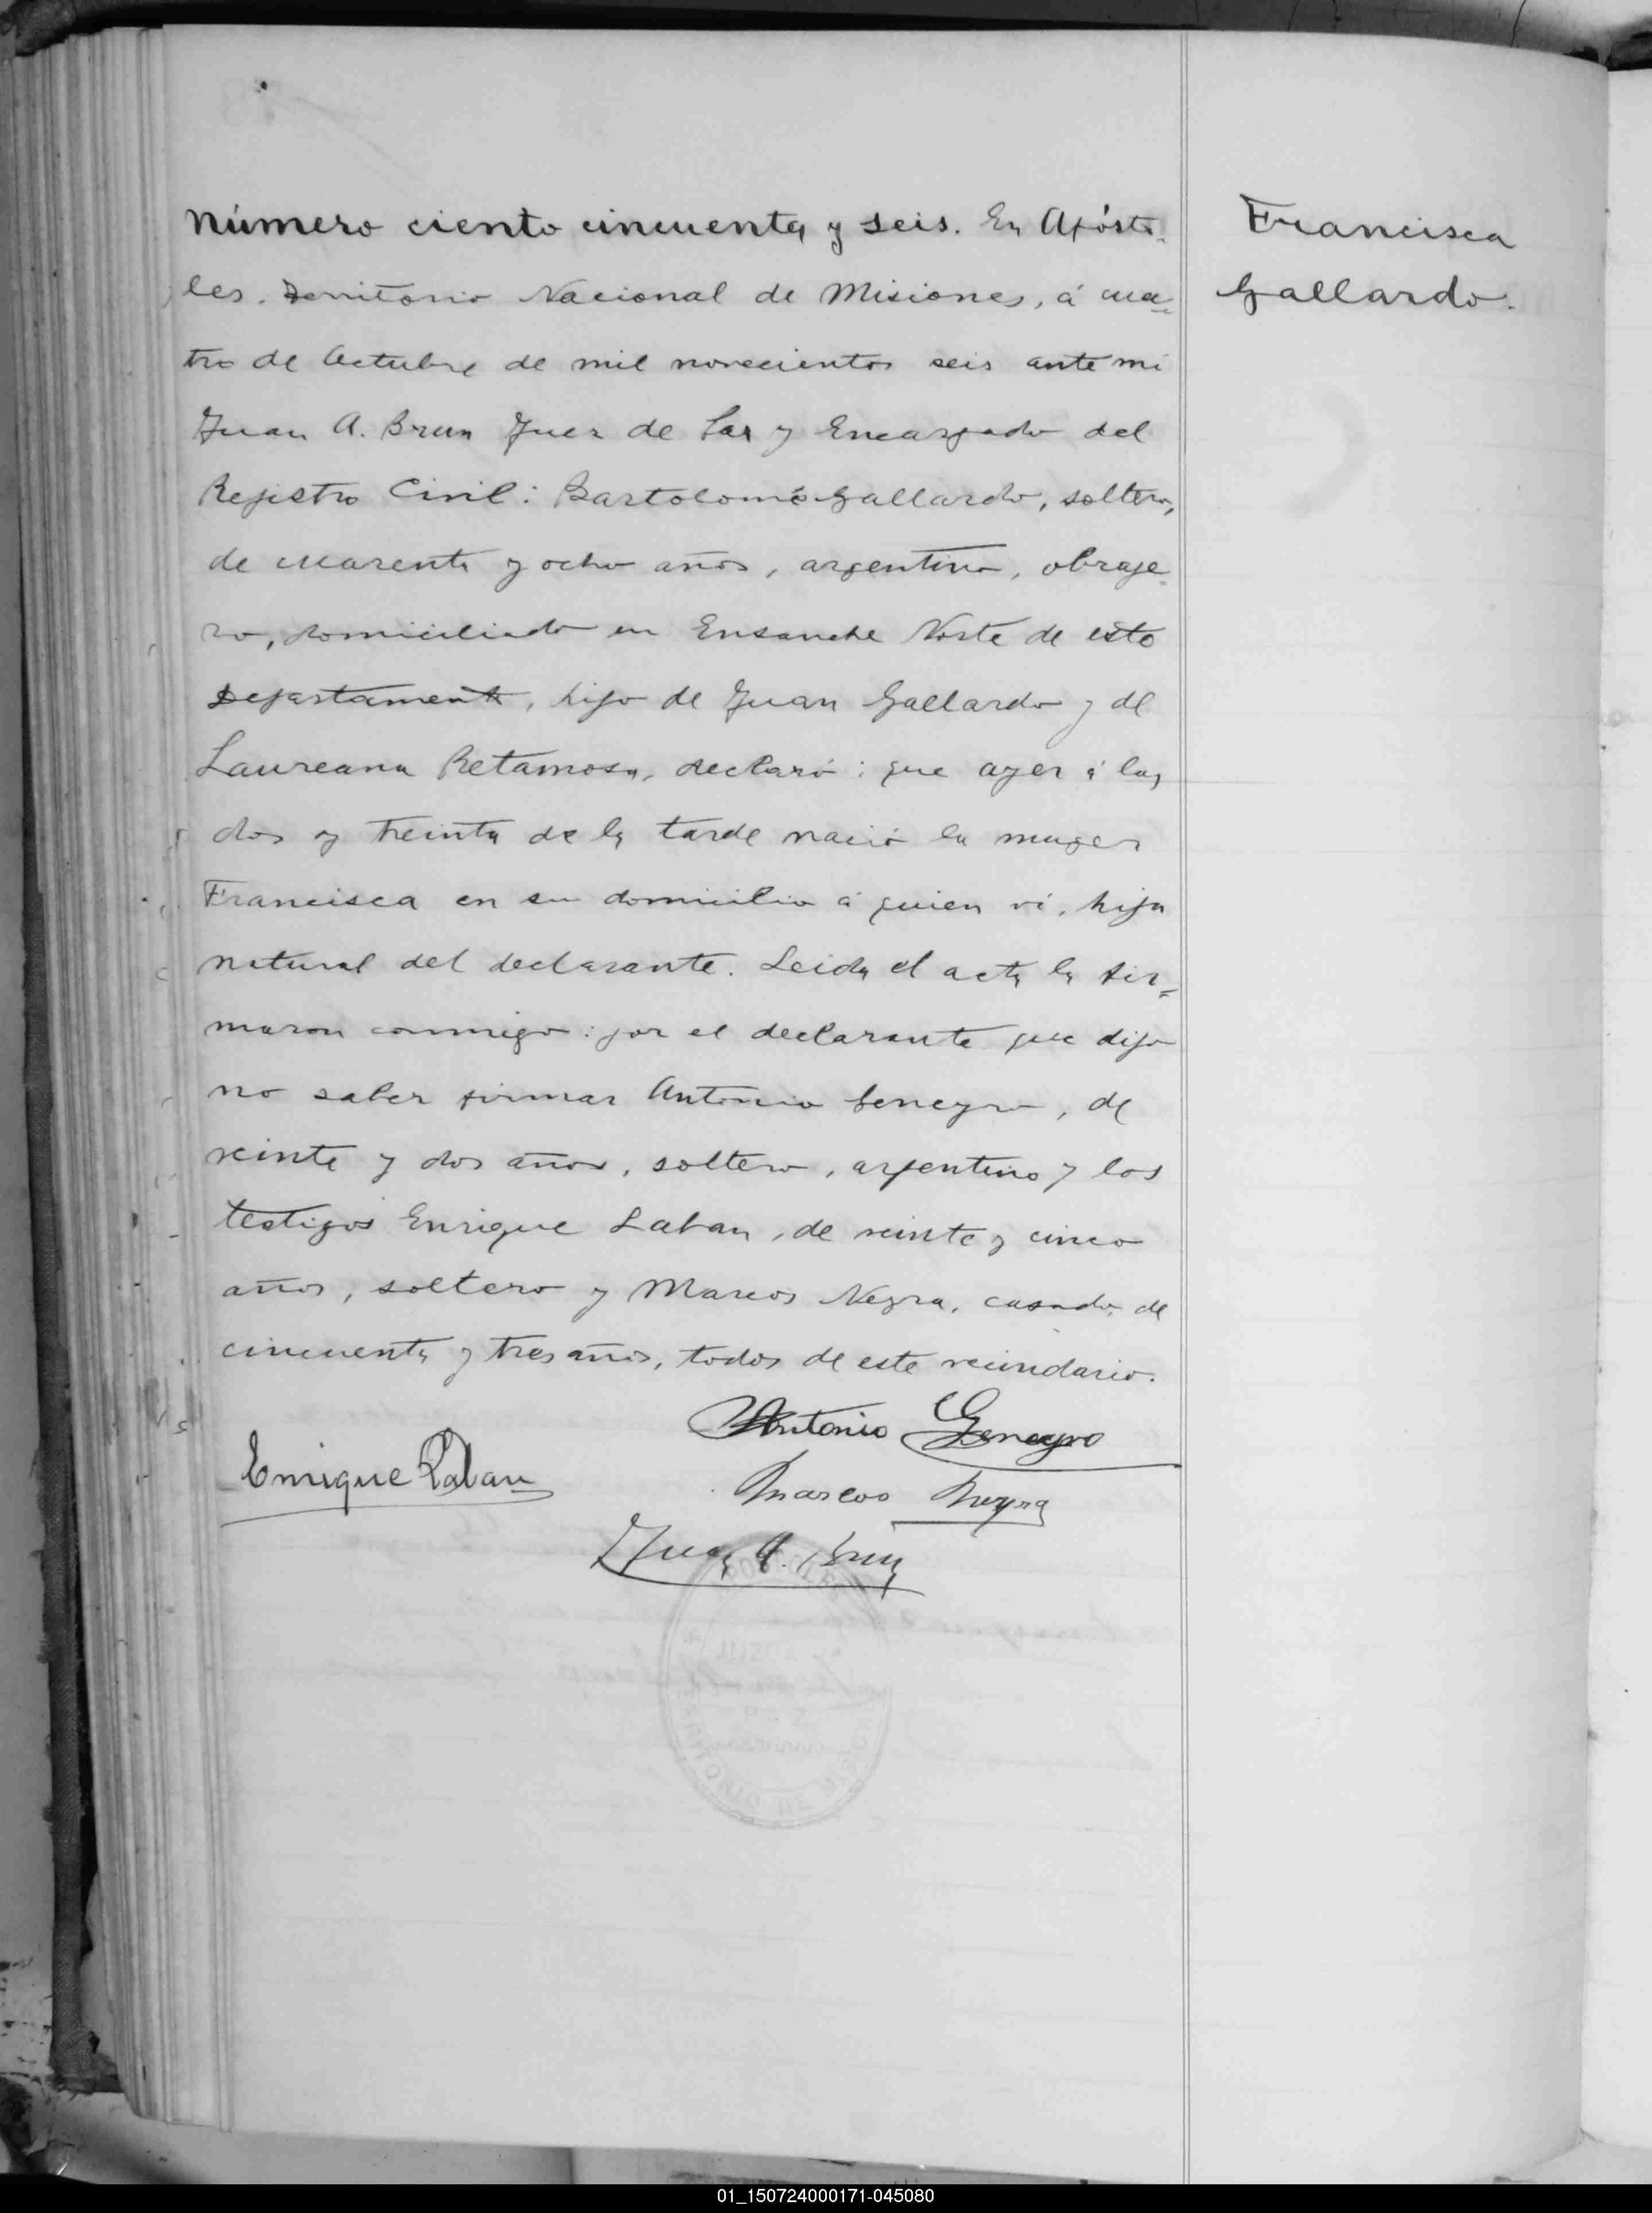 Número ciento cincuenta y seis. En Apósto-
les, Territorio Nacional de Misiones, á cua-
tro de Octubre de mil novecientos seis ante mi
Juan A. Brun Juez de Paz y Encargado del
Registro Civil: Bartolomé Gallardo, soltero,
de cuarenta y ocho años, argentino, obraje-
ro, domiciliado en Ensanche Norte de este
Departamento, hijo de Juan Gallardo y de
Laureana Retamosa, declaró: que ayer á las
dos y treinta de la tarde nació la muger
Francisca en su domicilio á quien ví, hija
natural del declarante. Leida el acta la fir-
maron conmigo: por el declarante que dijo
no saber firmar Antonio Geneyro, de
veinte y dos años, soltero, argentino y los
testigos Enrique Laban, de veinte y cinco
años, soltero y Marcos Neyra, casado, de
cincuenta y tres años, todos de este vecindario.
Antonio Geneyro
Enrique Laban
Marcos Neyra
Juan A. Brun
Francisca
Gallardo.
TERRITORIO DE
01_150724000171-045080